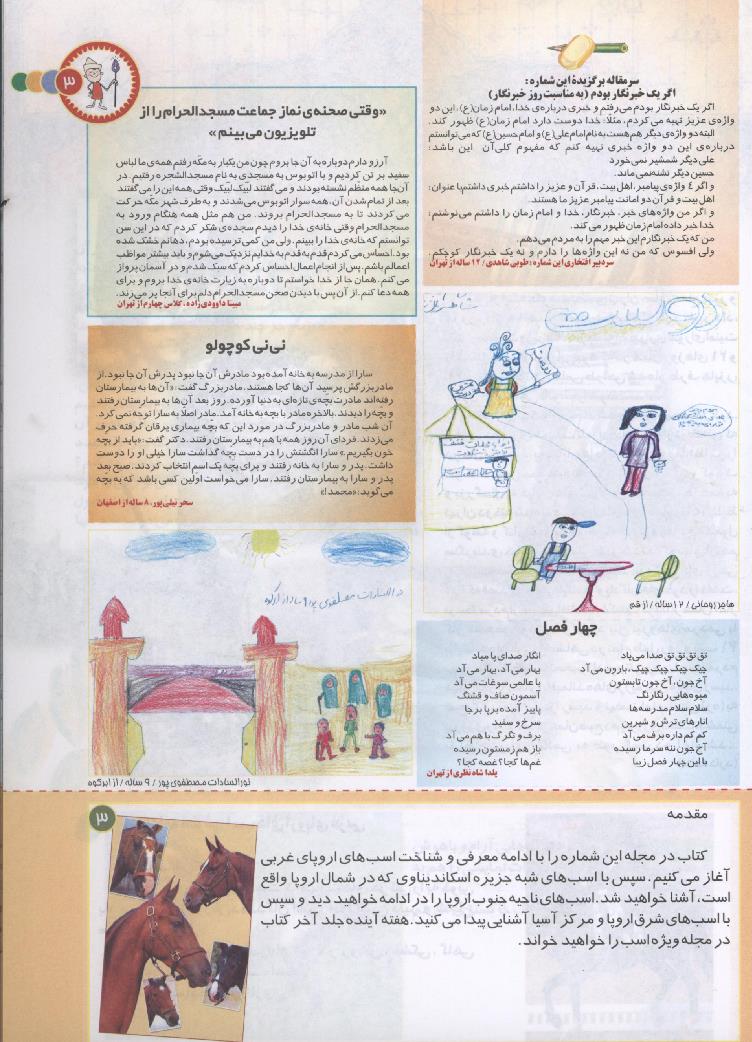 سرمقاله برگزیدهٔ این شماره:
اگر یک خبرنگار بودم (به مناسبت روز خبرنگار)
اگر یک خبرنگار بودم می‌رفتم و خبری درباره‌ی خدا، امام زمان(ع)، این دو
واژه‌ی عزیز تهیه می کردم، مثلاً: خدا دوست دارد امام زمان(ع) ظهور کند.
البته دو واژه‌ی دیگر هم هست به نام امام علی(ع) و امام حسین(ع) که می‌توانستم
درباره‌ی این دو واژه خبری تهیه کنم که مفهوم کلی‌آن این باشد:
علی دیگر شمشیر نمی خورد
حسین دیگر تشنه نمی‌ماند.
و اگر ٤ واژه‌ی پیامبر، اهل بیت، قرآن و عزیز را داشتم خبری داشتم با عنوان:
اهل بیت و قرآن دو امانت پیامبر عزیز ما هستند.
و اگر من واژه‌های خبر، خبرنگار، خدا و امام زمان را داشتم می‌نوشتم:
خدا خبر داده امام زمان ظهور می کند.
من که یک خبرنگارم این خبر مهم را به مردم می‌دهم.
ولی افسوس که من نه این واژه‌ها را دارم و نه یک خبرنگار کوچکم.
سردبیر افتخاری این شماره: طوبی شاهدی / ۱۲ ساله از تهران
۳
«وقتی صحنه‌ی نماز جماعت مسجدالحرام را از
تلویزیون می بینم»
آرزو دارم دوباره به آن جا بروم چون من یکبار به مکّه رفتم همه‌ی ما لباس
سفید بر تن کردیم و با اتوبوس به مسجدی به نام مسجدالشجره رفتیم. در
آن جا همه منظم نشسته بودند و می گفتند لبیک لبیک وقتی همه این را می گفتند
بعد از تمام شدن آن، همه سوار اتوبوس می‌شدند و به طرف شهر مکّه حرکت
می کردند تا به مسجدالحرام بروند. من هم مثل همه هنگام ورود به
مسجدالحرام وقتی خانه‌ی خدا را دیدم سجده‌ی شکر کردم که در این سن
توانستم که خانه‌ی خدا را ببینم. ولی من کمی ترسیده بودم، دهانم خشک شده
بود. احساس می کردم قدم به قدم به خدایم نزدیک می‌شوم و باید بیشتر مواظب
اعمالم باشم. پس از انجام اعمال احساس کردم که سبک شدم و در آسمان پرواز
می کنم. همان جا از خدا خواستم تا دوباره به زیارت خانه‌ی خدا بروم و برای
همه دعا کنم. از آن پس با دیدن صحن مسجدالحرام دلم برای آنجا پر می‌زند.
مبینا داوودی‌زاده، کلاس چهارم از تهران
نی نی کوچولو
سارا از مدرسه به خانه آمده بود مادرش آن جا نبود پدرش آن جا نبود. از
مادربزرگش پرسید آن‌ها کجا هستند. مادربزرگ گفت: «آن‌ها به بیمارستان
رفته‌اند مادرت بچه‌ی تازه‌ای به دنیا آورده. روز بعد آن‌ها به بیمارستان رفتند
و بچه را دیدند. بالاخره مادر با بچه به خانه آمد. مادر اصلاً به سارا توجه نمی کرد.
آن شب مادر و مادربزرگ در مورد این که بچه بیماری یرقان گرفته حرف
می‌زدند. فردای آن روز همه با هم به بیمارستان رفتند. دکتر گفت: «باید از بچه
خون بگیریم.» سارا انگشتش را در دست بچه گذاشت سارا خیلی او را دوست
داشت. پدر و سارا به خانه رفتند و برای بچه یک اسم انتخاب کردند. صبح بعد
پدر و سارا به بیمارستان رفتند. سارا می‌خواست اولین کسی باشد که به بچه
می‌گوید: «محمد!»
سحر نیلی‌پور، ۸ ساله از اصفهان
هاجر زمانی / ۱۲ ساله / از قم
نورالسادات مصطفوی پور ۹ ساله از ابرکوه
نورالسادات مصطفوی پور / ۹ ساله / از ابرکوه
چهار فصل
تق تق تق تق صدا می‌یاد
انگار صدای پا میاد
چیک چیک چیک چیک، بارون می آد
بهار می آد، بهار می آد
آخ جون، آخ جون تابستون
با عالمی سوغات می آد
میوه‌هایی رنگارنگ
آسمون صاف و قشنگ
سلام سلام مدرسه‌ها
پاییز آمده برپا برجا
انارهای ترش و شیرین
سرخ و سفید
کم کم داره برف می آد
برف و تگرگ با هم می آد
آخ جون ننه سرما رسیده
باز هم زمستون رسیده
با این چهار فصل زیبا
غم‌ها کجا؟ غصه کجا؟
یلدا شاه نظری از تهران
۳
مقدمه
کتاب در مجله این شماره را با ادامه معرفی و شناخت اسب‌های اروپای غربی
آغاز می کنیم. سپس با اسب‌های شبه جزیره اسکاندیناوی که در شمال اروپا واقع
است، آشنا خواهید شد. اسب‌های ناحیه جنوب اروپا را در ادامه خواهید دید و سپس
با اسب‌های شرق اروپا و مرکز آسیا آشنایی پیدا می کنید. هفته آینده جلد آخر کتاب
در مجله ویژه اسب را خواهید خواند.